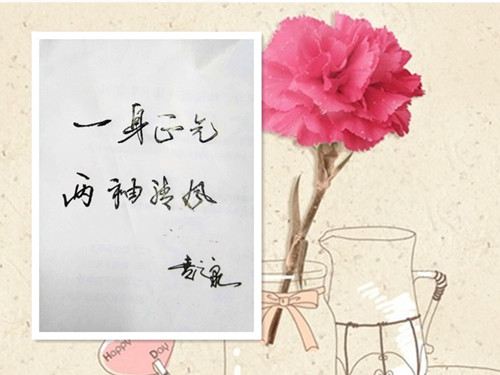 一身正气
两袖清风
Happy
Day